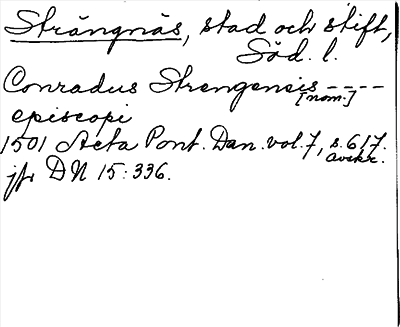 Strängnäs, stad och stift,
Söd. l.
Conradus Strengensis ----
[nom.]
episcopi
1501 Acta Pont. Dan. vol. 7, s. 617.
avskr.
jfr DN 15:336.